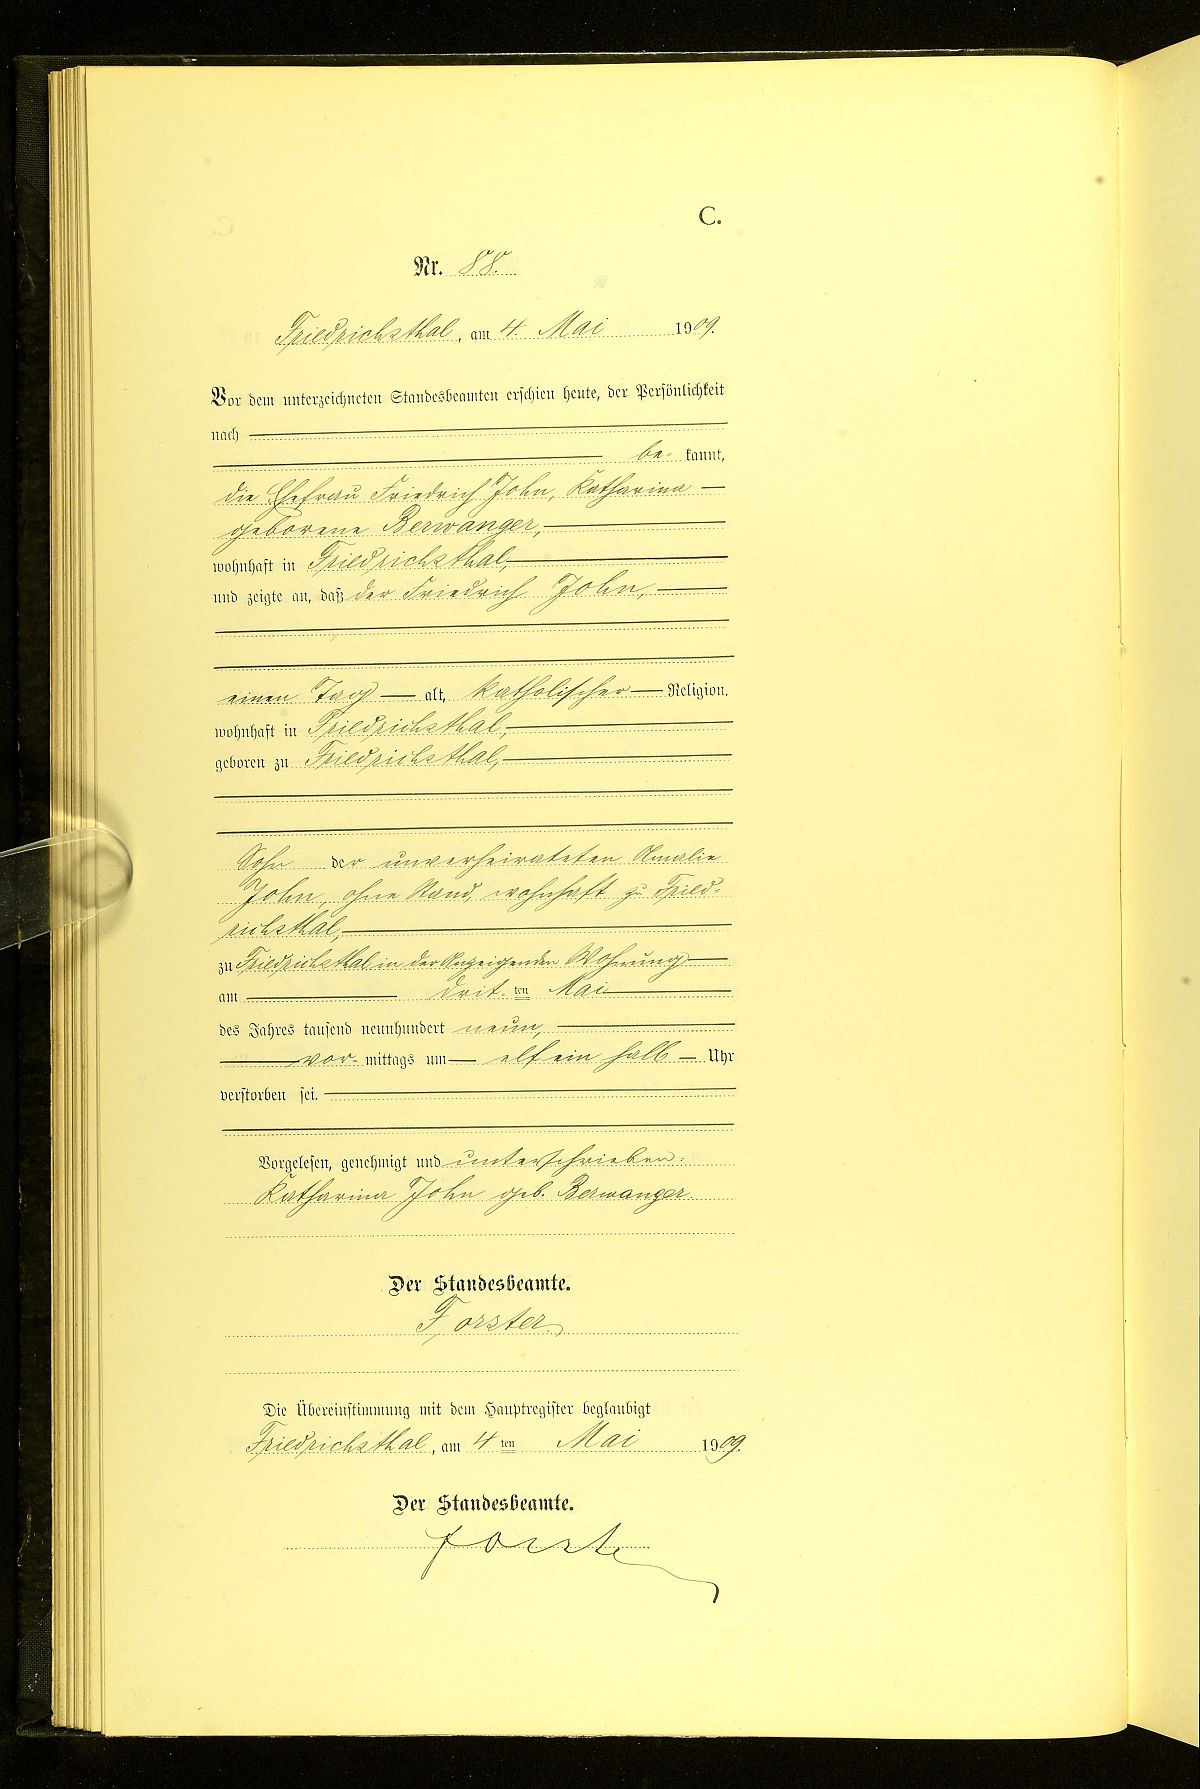 C.
Nr. 88.
Friedrichsthal, am 4. Mai 1909.
Vor dem unterzeichneten Standesbeamten erschien heute, der Persönlichkeit
nach
be- kannt,
die Ehefrau Friedrich John, Katharina
geborene Berwanger,
wohnhaft in Friedrichsthal,
und zeigte an, daß der Friedrich John,
einen Tag alt, katholischer Religion,
wohnhaft in Friedrichsthal,
geboren zu Friedrichsthal,
Sohn der unverheirateten Amalie
John, ohne Stand, wohnhaft zu Fried-
richsthal,
zu Friedrichsthal in der Anzeigenden Wohnung
am drit- ten Mai
des Jahres tausend neunhundert neun,
vor- mittags um elf ein halb Uhr
verstorben sei.
Vorgelesen, genehmigt und unterschrieben.
Katharina John geb. Berwanger.
Der Standesbeamte.
Forster.
Die Übereinstimmung mit dem Hauptregister beglaubigt
Friedrichsthal, am 4 ten Mai 1909.
Der Standesbeamte.
Forster